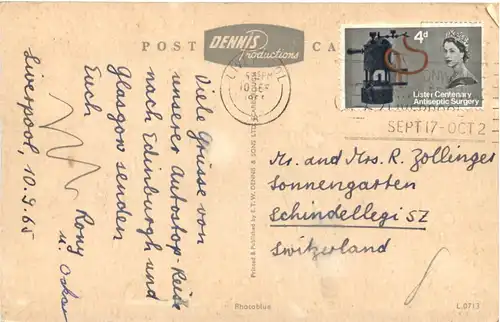 POST
DENNIS
Productions
CA
4d
Lister Centenary
Antiseptic Surgery
10 SEP
SEPT 17-OCT 2
Viele Grüsse von
unserer Autostop-Reise
nach Edinburgh und
Glasgow senden
Euch
Rony
u.
Liverpool, 10.9.65
Printed & Published by E. T. W. DENNIS & SONS LTD.
Mr. and Mrs. R. Zollinger
Sonnengarten
Schindellegi SZ
Switzerland
Photoblue
L.0713